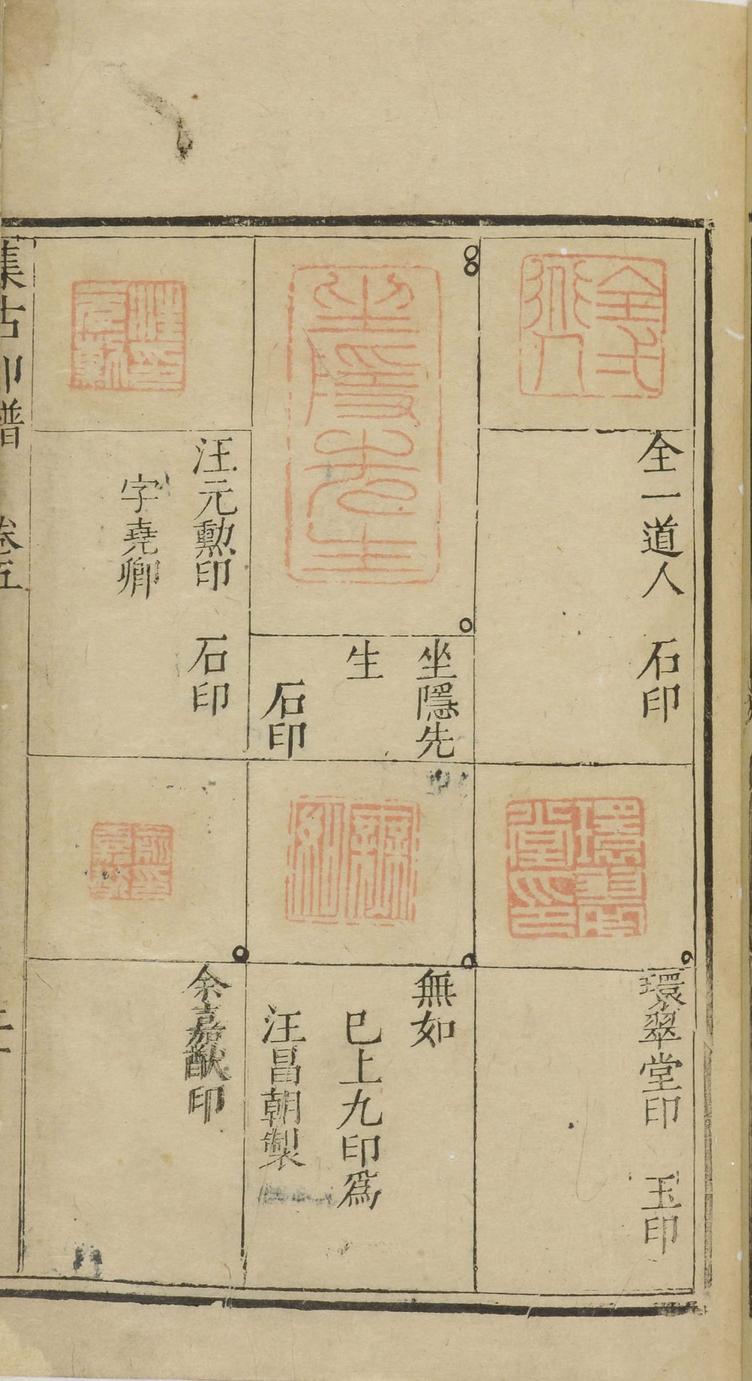 全一道人　石印
坐隱先
生
石印
汪元勲印　石印
字堯卿
環翠堂印　玉印
無如
已上九印爲
汪昌朝製
余嘉猷印
集古印譜　卷五